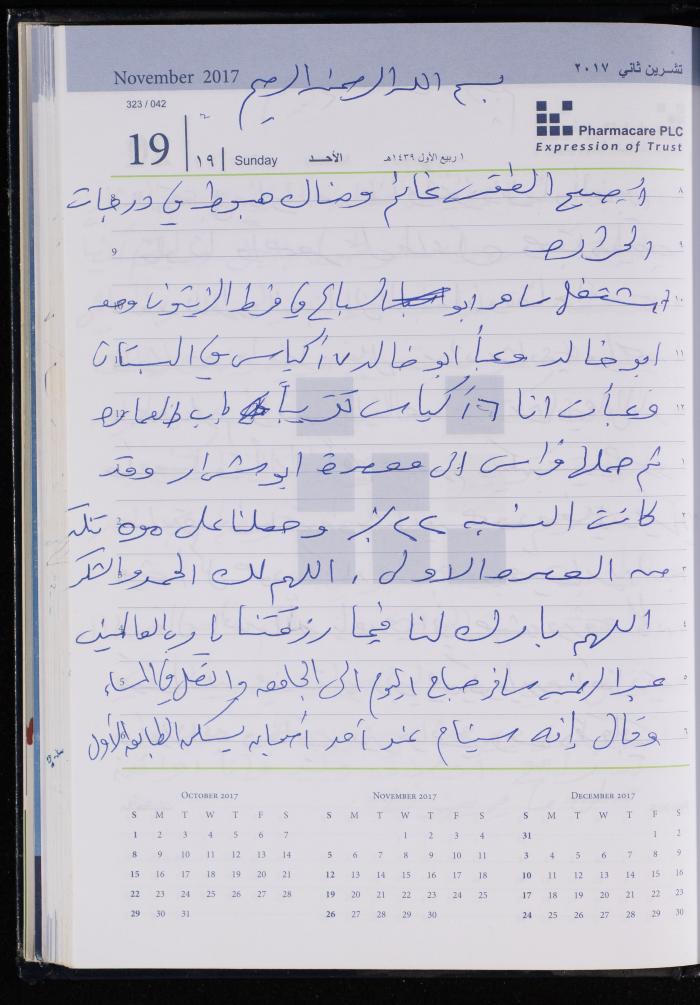 November 2017
تشرين ثاني ٢٠١٧
بسم الله الرحمن الرحيم
323 / 042
19
١٩
Sunday
الأحد
١ ربيع الأول ١٤٣٩هـ
Pharmacare PLC
Expression of Trust
٨ أصبح الطقس غائم وهناك هبوط في درجات
٩ الحرارة
١٠ اشتغل ساهر ابو السباع في فرط الزيتون ومعه
١١ ابو خالد وعبأ ابو خالد ٧ أكياس في البستان
١٢ وعبأت انا أكياس تقريباً باب العمارة
١ ثم حملها فراس إلى معصرة ابو شرار وقد
٢ كانت النسبه ٢٢٪ وحصلنا على تنكه
٣ من العصره الاولى . اللهم لك الحمد والشكر
٤ اللهم بارك لنا فيما رزقتنا يا رب العالمين
٥ عبد الرحمن سافر صباح اليوم الى الجامعه واتصل في المساء
٦ وقال إنه سينام عند أحد أصحابه يسكن الطابق الأول
October 2017 November 2017 December 2017
S M T W T F S S M T W T F S S M T W T F S
1 2 3 4 5 6 7 1 2 3 4 31 1 2
8 9 10 11 12 13 14 5 6 7 8 9 10 11 3 4 5 6 7 8 9
15 16 17 18 19 20 21 12 13 14 15 16 17 18 10 11 12 13 14 15 16
22 23 24 25 26 27 28 19 20 21 22 23 24 25 17 18 19 20 21 22 23
29 30 31 26 27 28 29 30 24 25 26 27 28 29 30